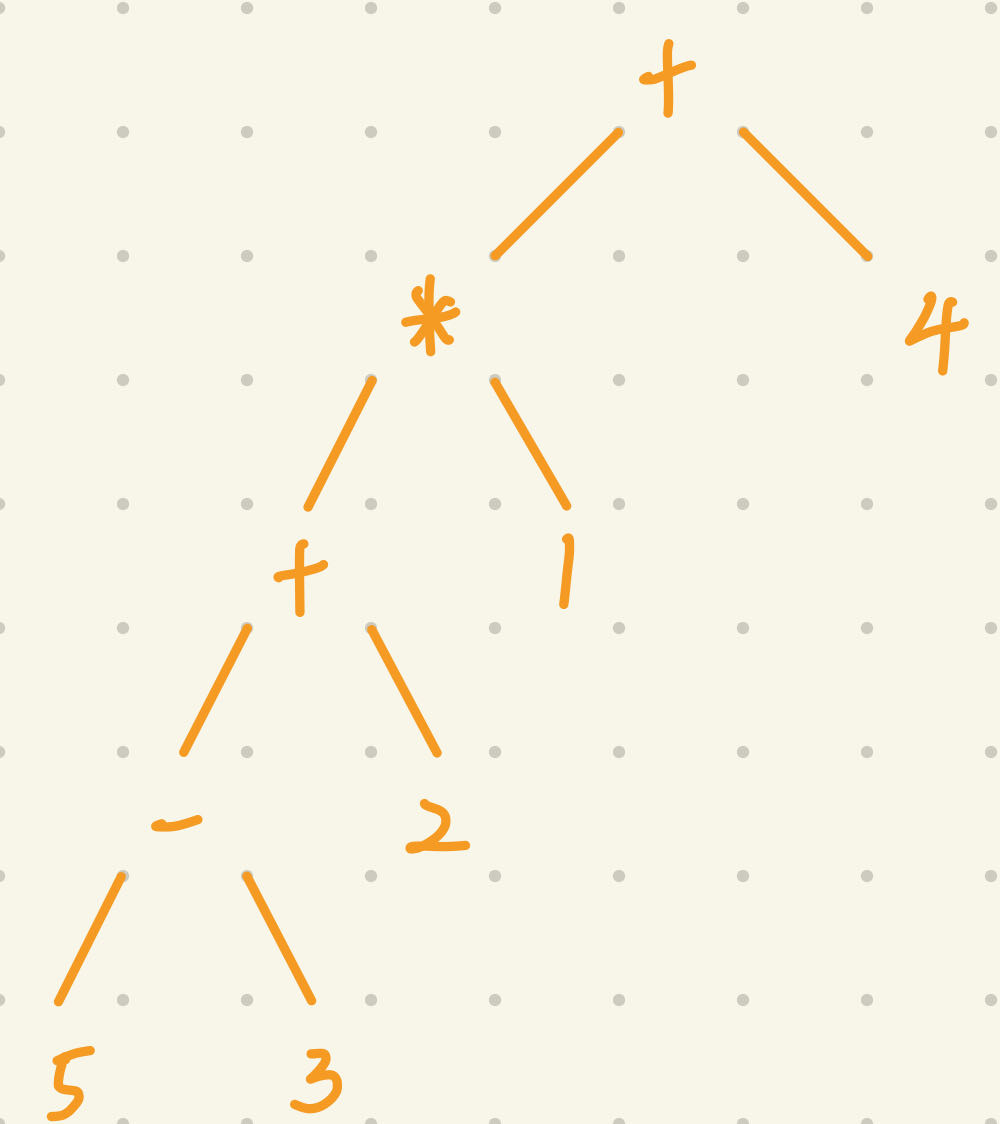 +
* 4
+ 1
- 2
5 3